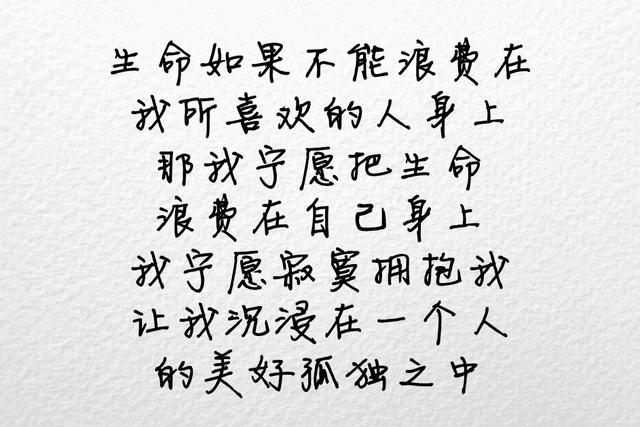 生命如果不能浪费在
我所喜欢的人身上
那我宁愿把生命
浪费在自己身上
我宁愿寂寞拥抱我
让我沉浸在一个人
的美好孤独之中